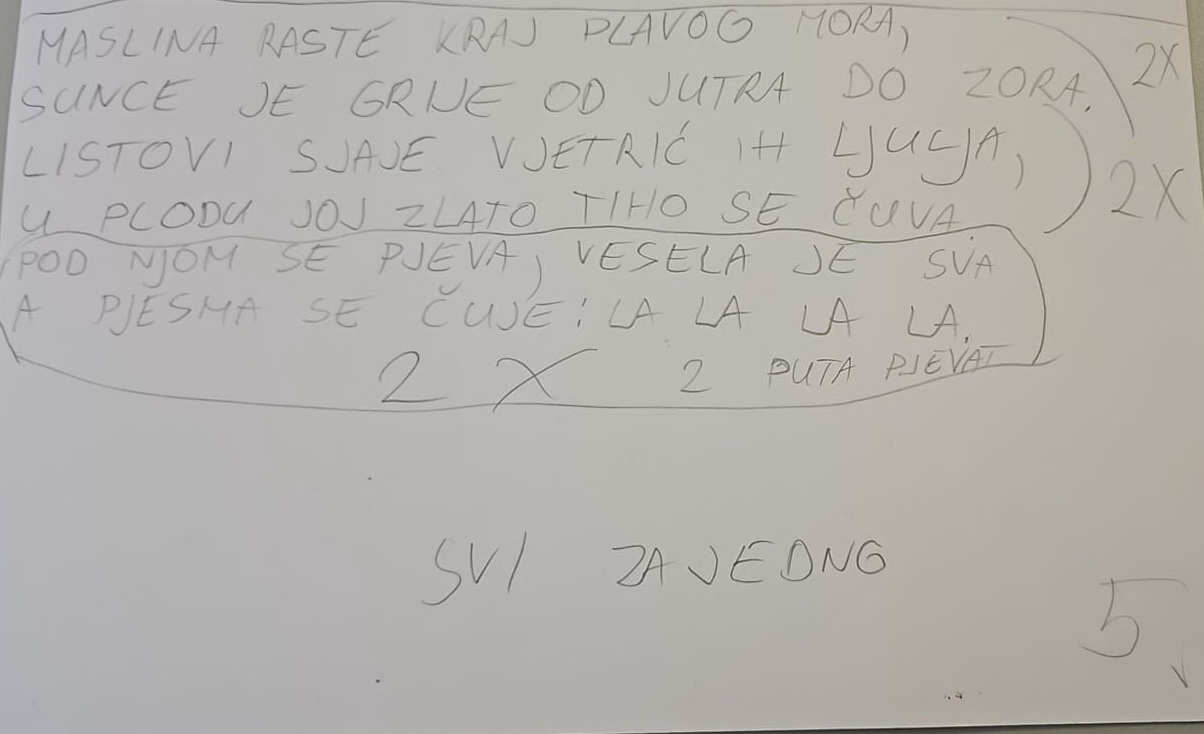 MASLINA RASTE KRAJ PLAVOG MORA, 2X
SUNCE JE GRIJE OD JUTRA DO ZORA.
LISTOVI SJAJE VJETRIĆ IH LJULJA, 2X
U PLODU JOJ ZLATO TIHO SE ČUVA.
POD NJOM SE PJEVA, VESELA JE SVA
A PJESMA SE ČUJE: LA LA LA LA.
2 X 2 PUTA PJEVAT
SVI ZAJEDNO
5